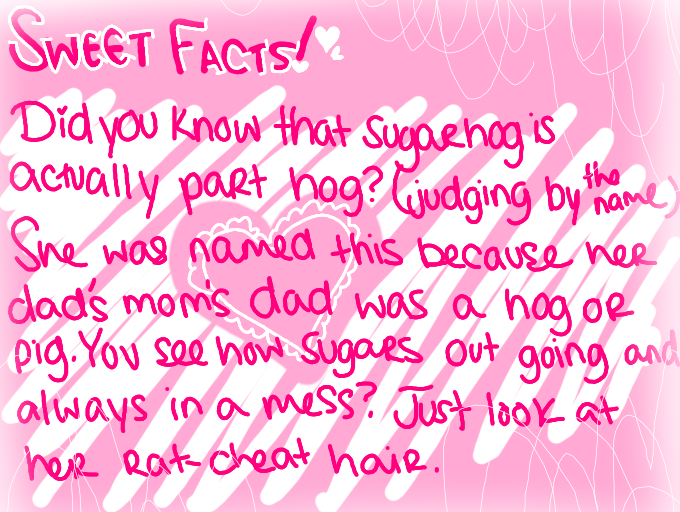 SWEET FACTS!
Did you know that sugarhog is
actually part hog? (judging by the name)
She was named this because her
dad's mom's dad was a hog or
pig. You see how sugars out going and
always in a mess? Just look at
her rat-cheat hair.